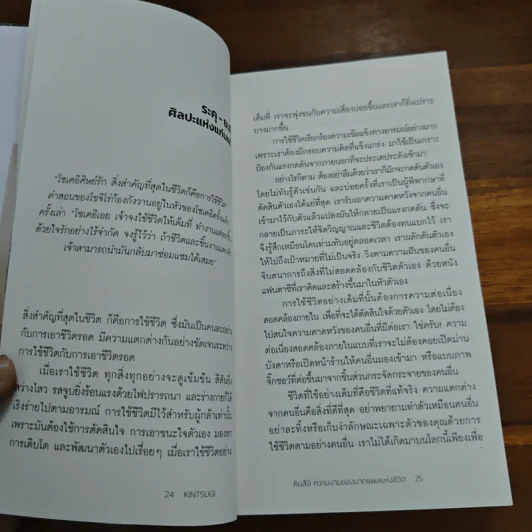 ระคุ - 
ศิลปะแห่ง
"โซเคอิศิษย์รัก สิ่งสำคัญที่สุดในชีวิตก็คือการใช้ชีวิต"
คำสอนของโซจิโร่ก้องกังวานอยู่ในหัวของโซเคอิครั้งแล้ว
ครั้งเล่า "โซเคอิเอย เจ้าจงใช้ชีวิตให้เต็มที่ ทำงานแต่ละชิ้น
ด้วยใจรักอย่างไร้จำกัด จงรู้ไว้ว่า ถ้าชีวิตและชิ้นงานแตกร้าว
เจ้าสามารถนำมันกลับมาซ่อมแซมได้เสมอ"
สิ่งสำคัญที่สุดในชีวิต ก็คือการใช้ชีวิต ซึ่งมันเป็นคนละอย่าง
กับการเอาชีวิตรอด มีความแตกต่างกันอย่างชัดเจนระหว่าง
การใช้ชีวิตกับการเอาชีวิตรอด
เมื่อเราใช้ชีวิต ทุกสิ่งทุกอย่างจะดูเข้มข้น สีสัน
สว่างไสว รสจูบยิ่งร้อนแรงด้วยไฟปรารถนา และร่างกายก็
เริงร่ายไปตามอารมณ์ การใช้ชีวิตมีไว้สำหรับผู้กล้าเท่านั้น
เพราะมันต้องใช้การตัดสินใจ การเอาชนะใจตัวเอง มองหา
การเติบโต และพัฒนาตัวเองไปเรื่อยๆ เมื่อเราใช้ชีวิตอย่าง
24 KINTSUGI
เต็มที่ เราจะพุ่งชนกับความเสี่ยงบ่อยขึ้นและเราก็ยิ่งเปราะ
บางมากขึ้น
การใช้ชีวิตเรียกร้องความเข้มแข็งทางอารมณ์อย่างมาก
เพราะเราต้องมีกรอบความคิดที่แข็งแกร่ง มาใช้เป็นเกราะ
ป้องกันแรงกดดันจากภายนอกที่จะประเดประดังเข้ามา
อย่างไรก็ตาม ต้องอย่าลืมด้วยว่าเราก็มักจะกดดันตัวเอง
โดยไม่ทันรู้ตัวเช่นกัน และบ่อยครั้งที่เราเป็นผู้พิพากษาที่
ตัดสินตัวเองได้แย่ที่สุด เรารับเอาความคาดหวังจากคนอื่น
เข้ามาไว้กับตัวแล้วแปลงมันให้กลายเป็นแรงกดดัน ซึ่งจะ
กลายเป็นภาระให้จิตวิญญาณและชีวิตต้องทนแบกไว้ เรา
จึงรู้สึกเหมือนโดนท่วมทับอยู่ตลอดเวลา เราผลักดันตัวเอง
ให้ไปถึงเป้าหมายที่ไม่เป็นจริง วิ่งตามความฝันของคนอื่น
จินตนาการถึงสิ่งที่ไม่สอดคล้องกับชีวิตตัวเอง ด้วยหนัง
แฟนตาซีที่เราคิดและสร้างขึ้นมาในหัวตัวเอง
การใช้ชีวิตอย่างเต็มที่นั้นต้องการความต่อเนื่อง
สอดคล้องภายใน เพื่อที่จะได้ตัดสินใจด้วยตัวเอง โดยไม่ต้อง
ไปสนใจความคาดหวังของคนอื่นที่มีต่อเรา ใช่ครับ! ความ
ต่อเนื่องสอดคล้องภายในแบบที่เราจะไม่ต้องคอยเปิดม่าน
บังตาหรือเปิดหน้าร้านให้คนอื่นมองเข้ามา หรือแบบภาพ
จิ๊กซอว์ที่ต่อขึ้นมาจากชิ้นส่วนกระจัดกระจายของคนอื่น
ชีวิตที่ใช้อย่างเต็มที่คือชีวิตที่แท้จริง ความแตกต่าง
จากคนอื่นคือสิ่งที่ดีที่สุด อย่าพยายามทำตัวเหมือนคนอื่น
อย่าละทิ้งหรือเก็บงำลักษณะเฉพาะตัวของคุณด้วยการ
ใช้ชีวิตตามอย่างคนอื่น เราไม่ได้เกิดมาบนโลกนี้เพียงเพื่อ
คินสึงิ ความงามของบาดแผลแห่งชีวิต 25